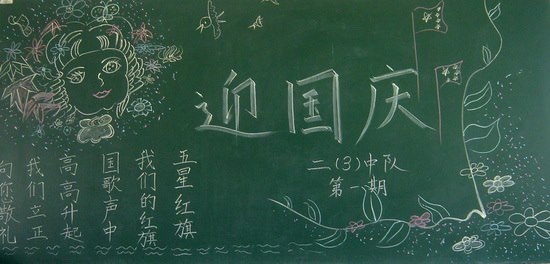 迎国庆
二(3)中队
第一期
五星红旗
我们的红旗
国歌声中
高高升起
我们立正
向您敬礼